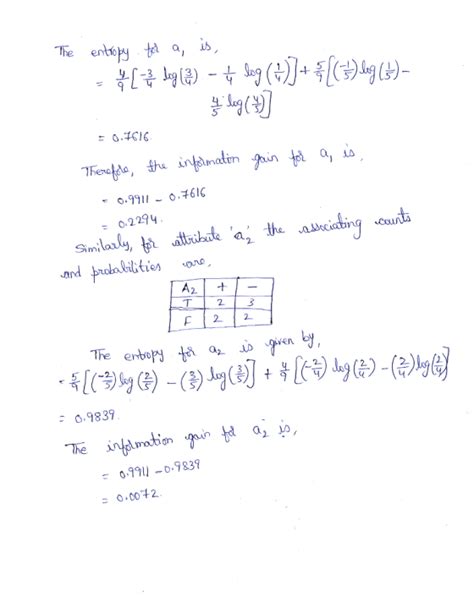 The entropy for a₁ is,
= 4/9 [-3/4 log(3/4) - 1/4 log(1/4)] + 5/9 [(-1/5) log(1/5) -
4/5 log(4/5)]
= 0.7616
Therefore, the information gain for a₁ is,
= 0.9911 - 0.7616
= 0.2294.
Similarly, for attribute 'a₂' the associating counts
and probabilities are,
A₂ + -
T 2 3
F 2 2
The entropy for a₂ is given by,
= 5/9 [(-2/5) log(2/5) - (3/5) log(3/5)] + 4/9 [(-2/4) log(2/4) - (2/4) log(2/4)]
= 0.9839.
The information gain for a₂ is,
= 0.9911 - 0.9839
= 0.0072.